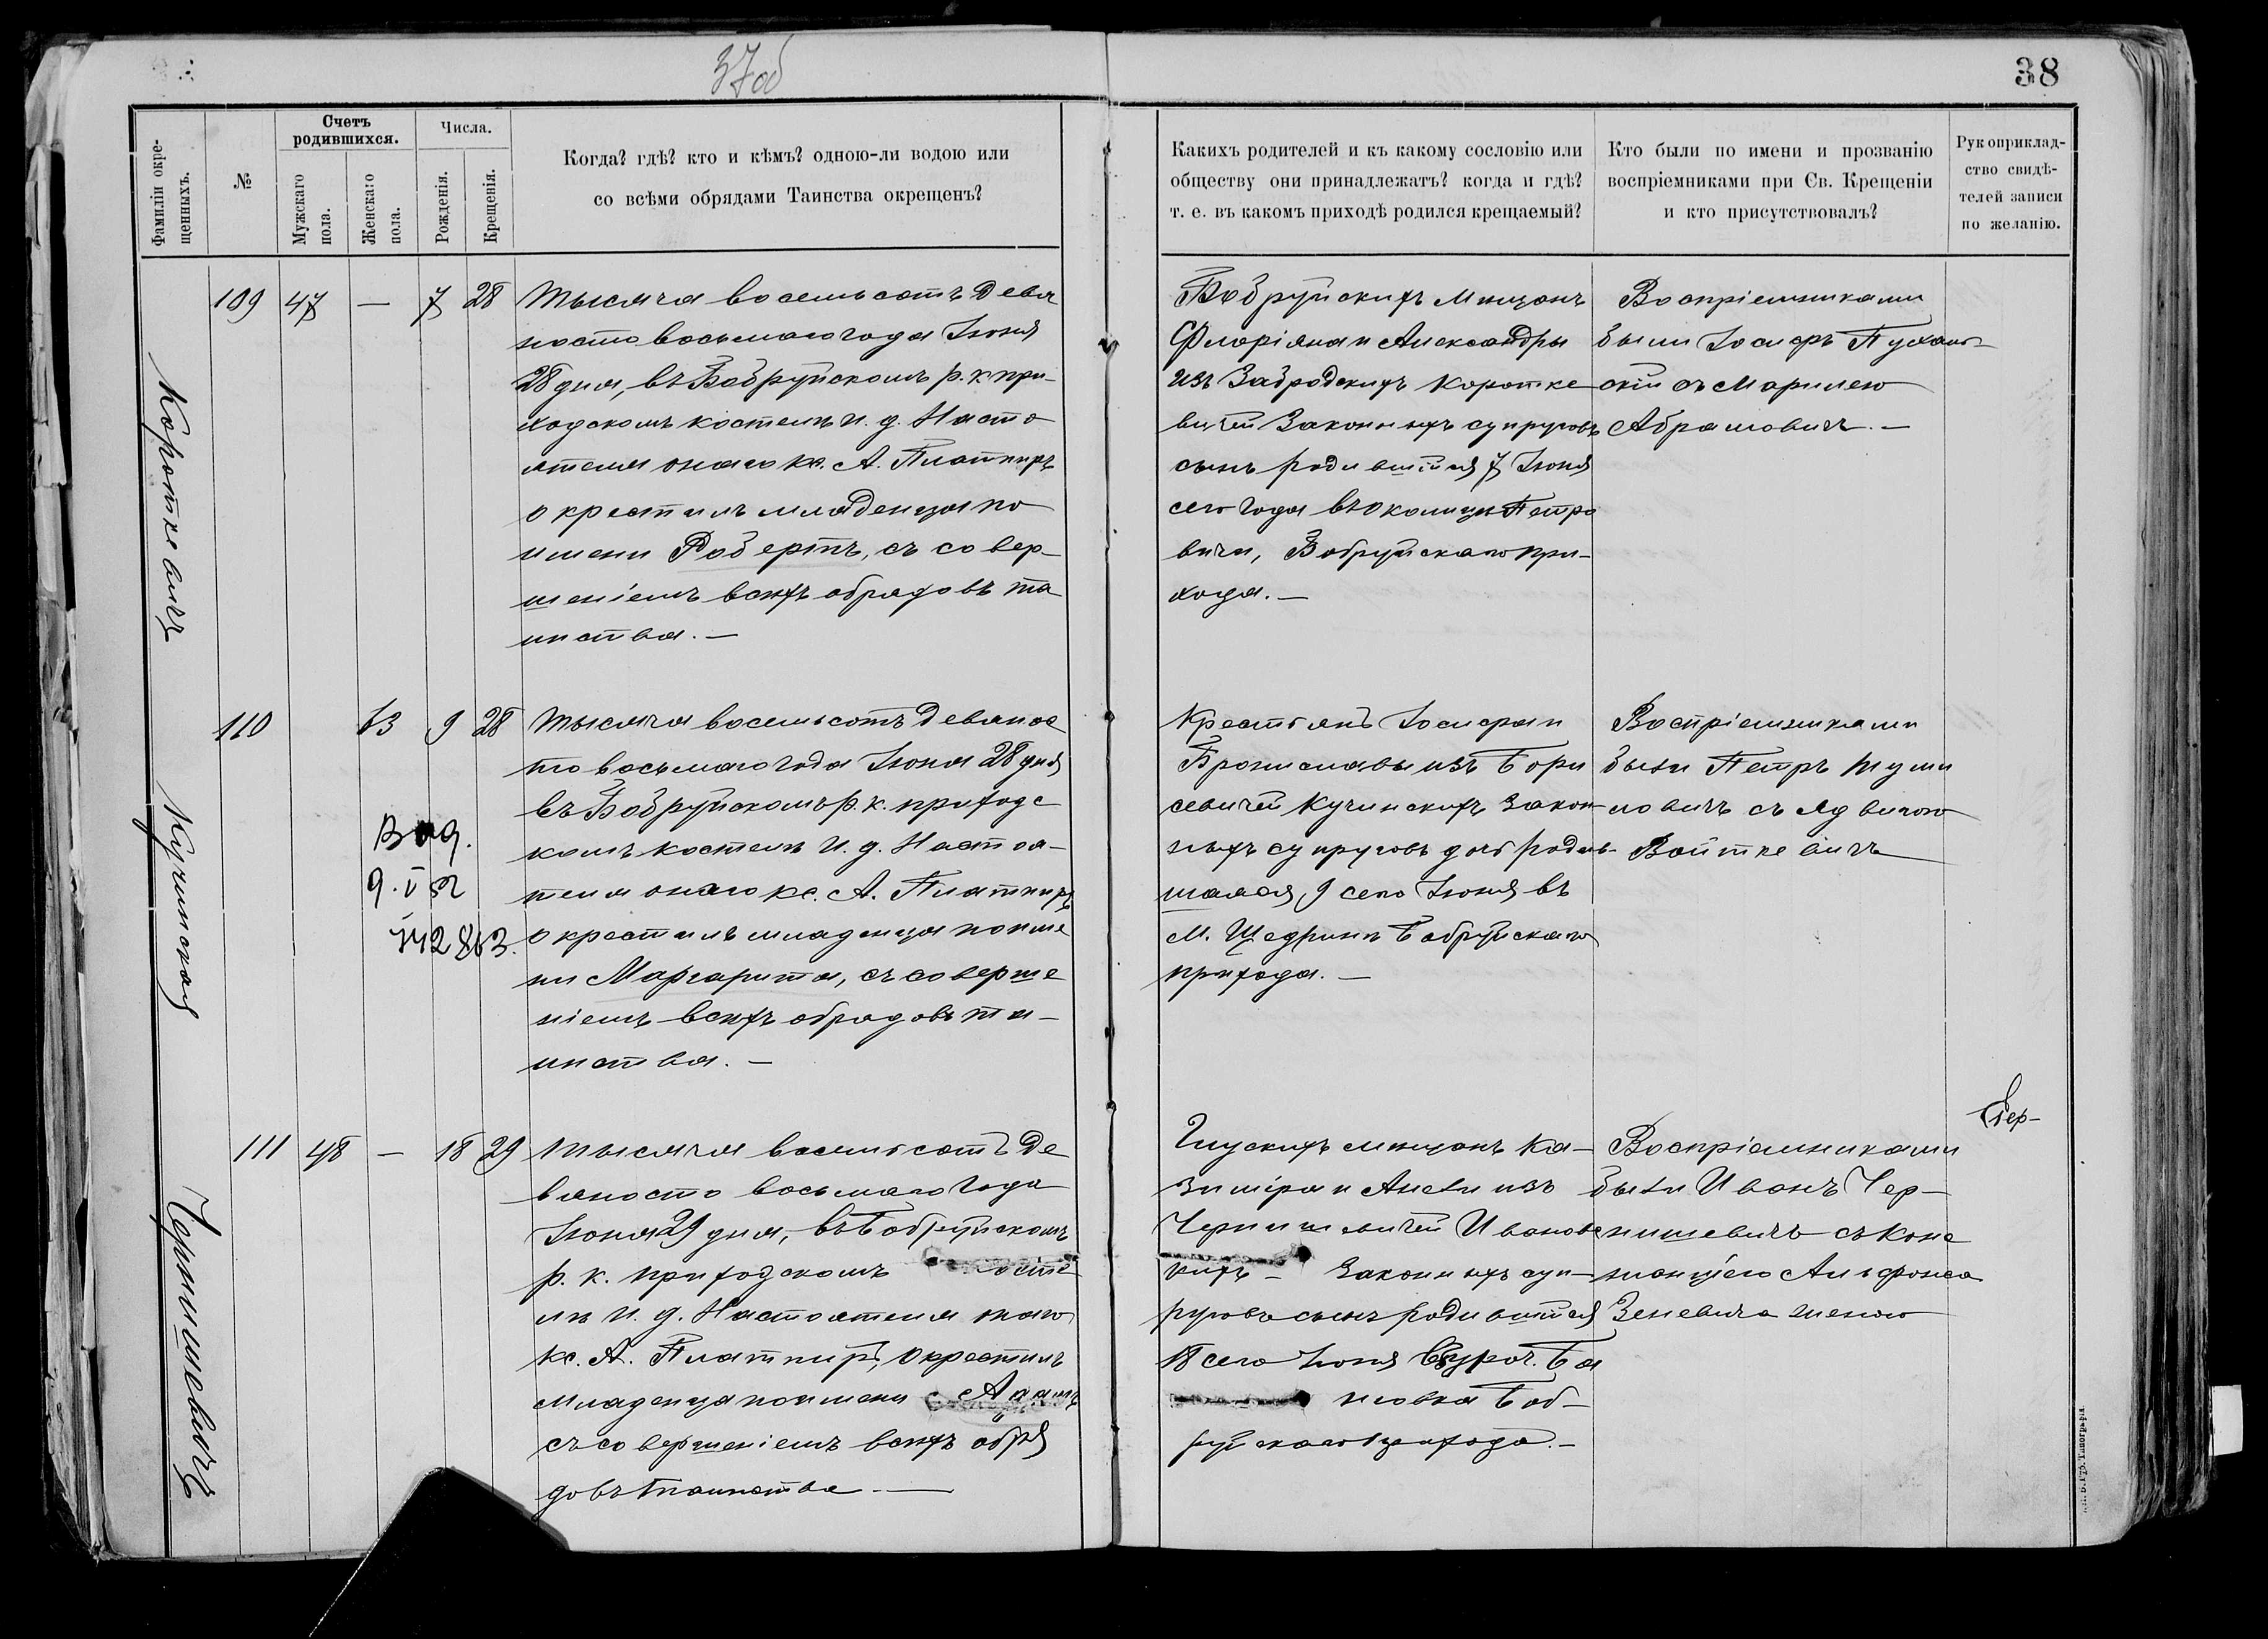 37об
38
Фамиліи окре-
щенныхъ.
№
Счетъ
родившихся.
Мужскаго
пола.
Женскаго
пола.
Числа.
Рожденія.
Крещенія.
Когда? гдѣ? кто и кѣмъ? одною-ли водою или
со всѣми обрядами Таинства окрещенъ?
Какихъ родителей и къ какому сословію или
обществу они принадлежатъ? когда и гдѣ?
т. е. въ какомъ приходѣ родился крещаемый?
Кто были по имени и прозванію
воспріемниками при Св. Крещеніи
и кто присутствовалъ?
Рукоприклад-
ство свидѣ-
телей записи
по желанію.
Короткевичъ
109 47 — 7 28
Тысяча восемьсотъ девя
носто восьмаго года Іюня
28 дня, въ Бобруйскомъ р. к. при-
ходскомъ костелѣ и. д. Насто
ятеля онаго кс. А. Платпиръ
окрестилъ младенца по
имени Робертъ, съ совер-
шеніемъ всѣхъ обрядовъ та
инства. —
Бобруйскихъ мѣщанъ
Флоріяна и Александры
изъ Забродскихъ Коротке
вичей законныхъ супруговъ
сынъ родившійся 7 Іюня
сего года въ околицѣ Петро
вичи, Бобруйскаго при-
хода. —
Воспріемниками
были Іосифъ Пухаль-
скій съ Марилею
Абрамовичъ. —
Кучинская
110 63 9 28
Выд.
9. V 52
742863.
Тысяча восемьсотъ девянос
то восьмаго года Іюня 28 дня
въ Бобруйскомъ р. к. приходс
комъ костелѣ и. д. Настоя-
теля онаго кс. А. Платпиръ
окрестилъ младенца по име
ни Маргарита, съ соверше
ніемъ всѣхъ обрядовъ та-
инства. —
Крестьянъ Іосифа и
Брониславы изъ Бори
севичей Кучинскихъ закон-
ныхъ супруговъ дочь родив-
шаяся 9 сего Іюня въ
м. Щедринѣ Бобруйскаго
прихода. —
Воспріемниками
были Петръ Туми
ловичъ съ Ядвигою
Войткевичъ
Чернишевичъ
111 48 — 18 29
Тысяча восемьсотъ де
вяносто восьмаго года
Іюня 29 дня, въ Бобруйскомъ
р. к. приходскомъ косте
лѣ и. д. Настоятеля онаго
кс. А. Платпиръ, окрестилъ
младенца по имени Адамъ
съ совершеніемъ всѣхъ обря
довъ таинства. —
Глускихъ мѣщанъ Ка-
зиміра и Анели изъ
Чернишевичей Ивановс
кихъ — законныхъ суп-
руговъ сынъ родившійся
18 сего Іюня въ уроч. Ба
новка Боб-
руйскаго прихода. —
Воспріемниками
были Иванъ Чер-
нишевичъ съ Конс
танціею Альфонса
Зеневича женою
Чер-